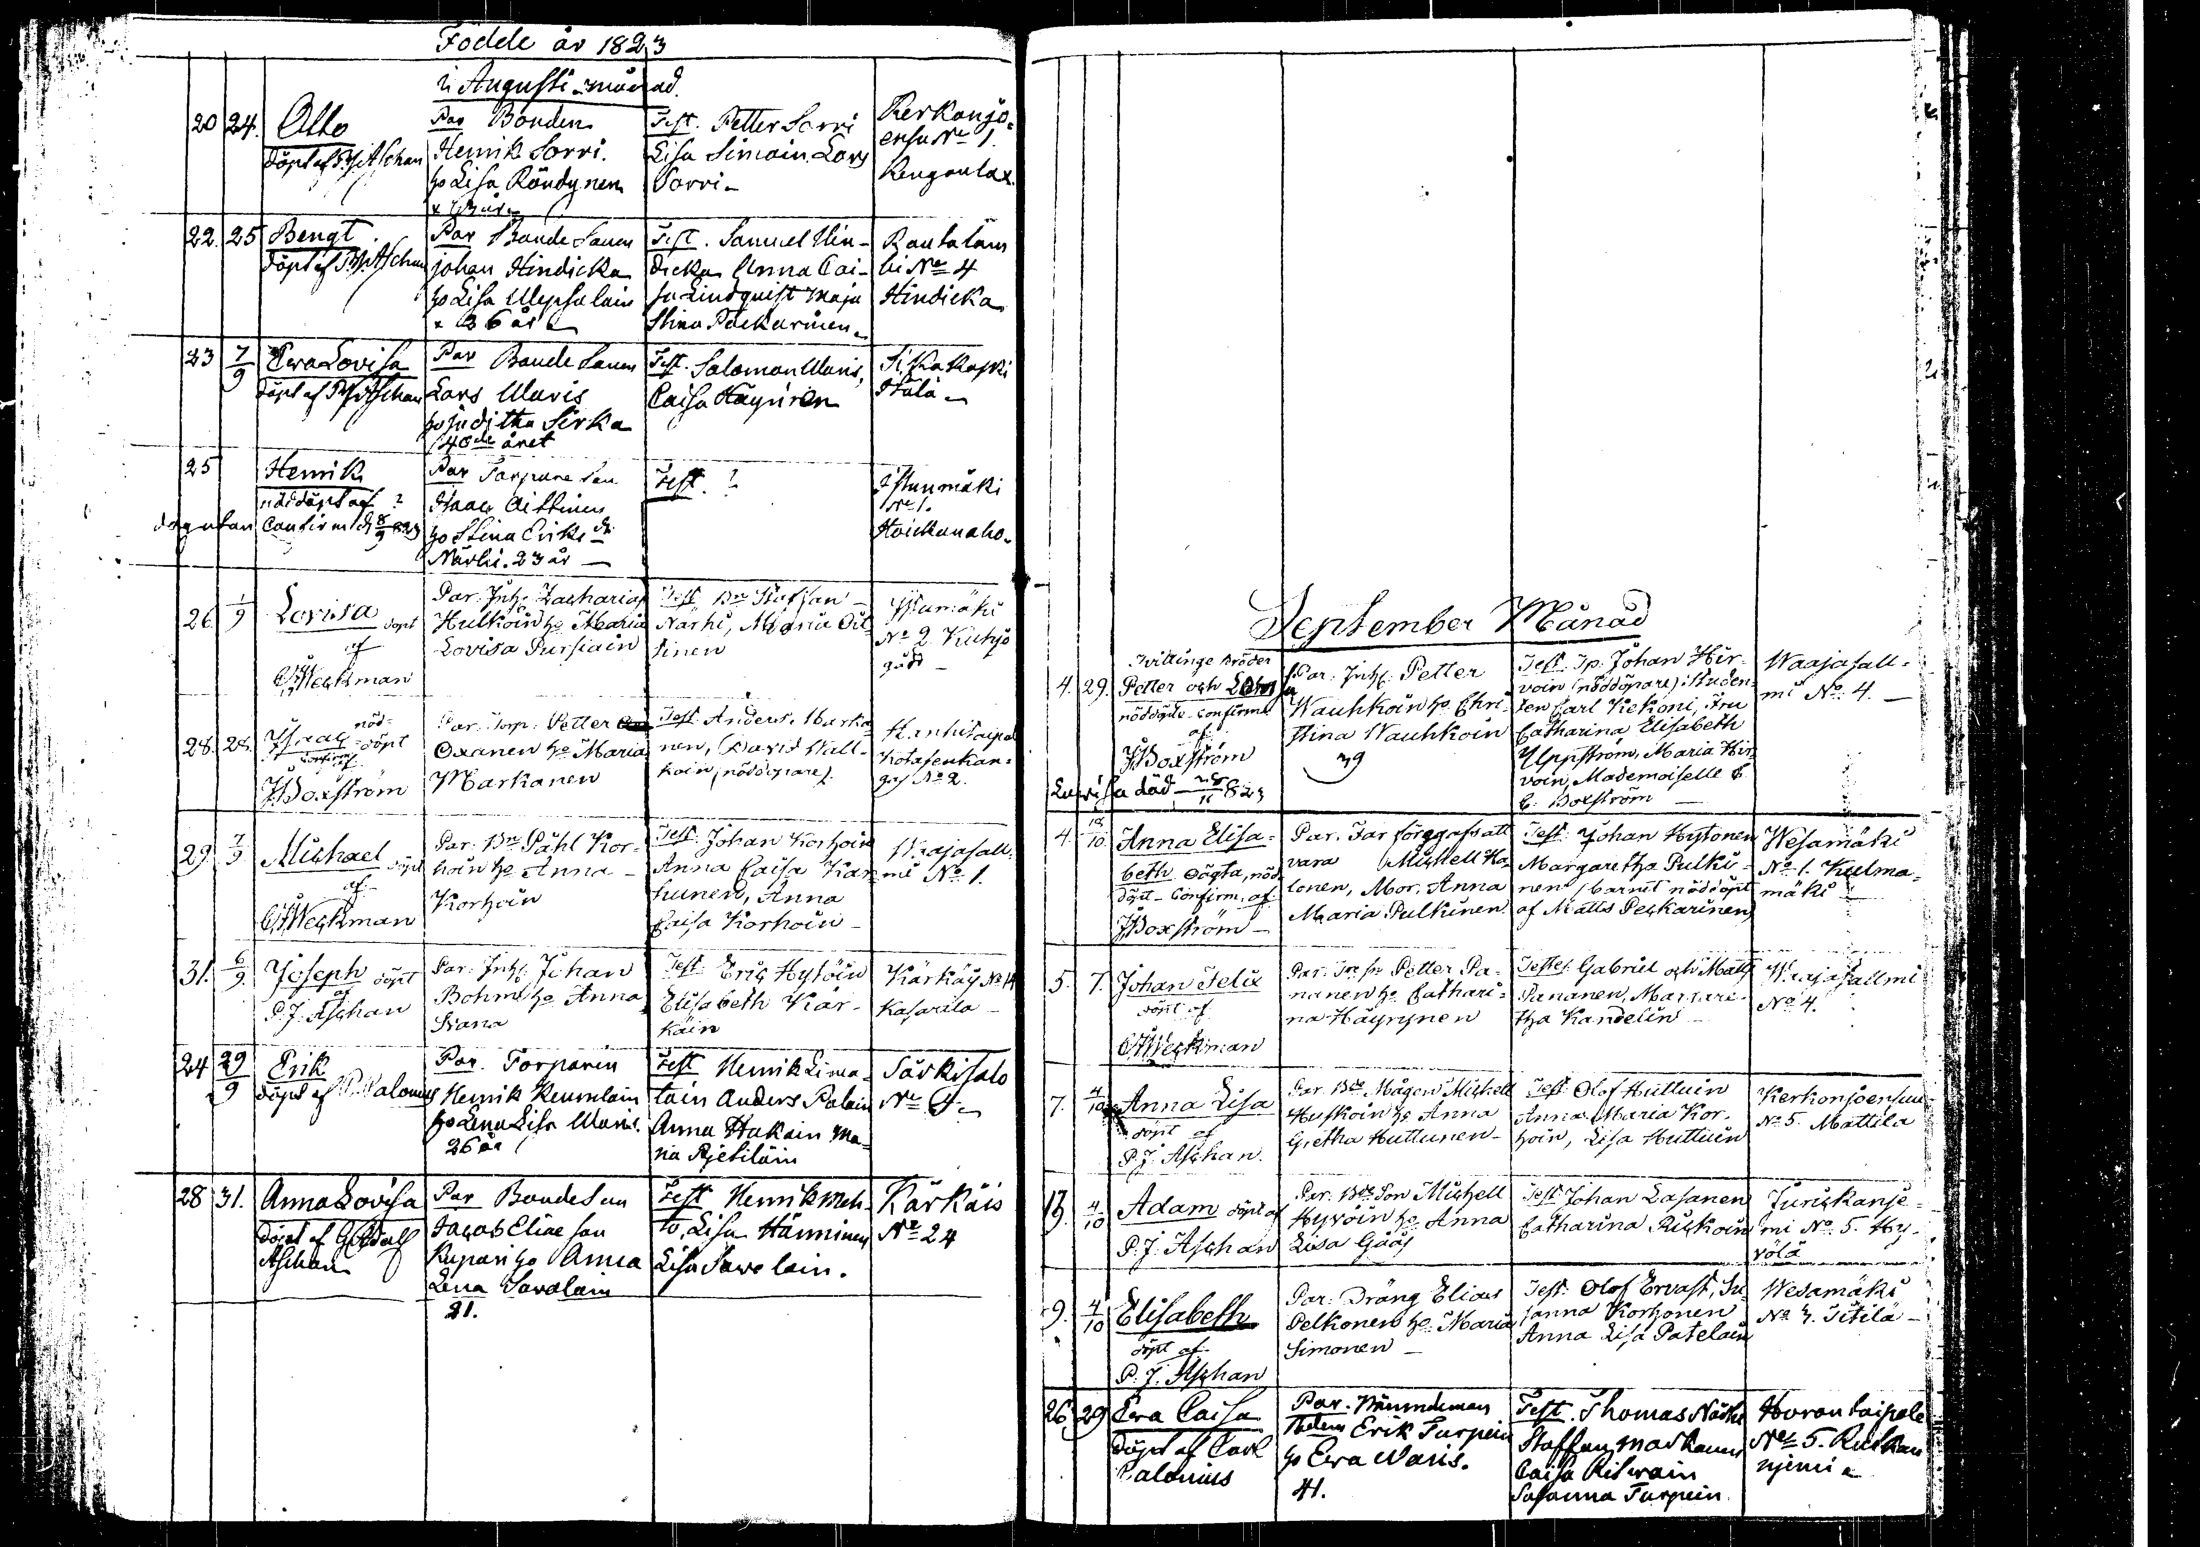 Födde år 1823
i Augusti månad.
20 24. Otto
döpt af P J Aschan
Par Bonden
Henrik Sorri.
ho Lisa Röndynen
Test. Petter Sorri
Lisa Simoin Lars
Sorri
Kerkonjo-
ensu No 1.
Kengonlax.
22. 25 Bengt
döpt af P J Aschan
Par Bonde Sonen
johan Hindicka
ho Lisa Ulepsalain
x 36 år
Test. Samuel Hin-
dicka Anna Cai-
sa Lindquist Maja
Stina Päckarinen
Rautalam
bi No 4
Hindicka
23 7/9 Ewa Lovisa
döpt af P J Aschan
Par Bonde Sonen
Lars Waris
ho juditha Sirka
40de året
Test. Salomon Waris,
Caisa Häyrinen
Sikakoski
Itälä
25 Henrik
nöddöpt af ?
Confirm d 8/9 823
Par Torpare Son
Isaac Oittinen
ho Stina Eriks dr
Närhi. 23 år
Test. ?
Istunmäki
No 1.
Hoickanaho.
26. 1/9 Lovisa döpt
af
Weckman
Par. Inh. Zacharias
Hulkoin ho Maria
Lovisa Pursiain
Test Bn Staffan
Närhi, Maria Oit-
tinen
Istamäki
No 2 Kuhjo
gård
28. 28. Isaac nöd-
döpt
confirm af
J Boxström
Par. Torp. Petter
Oxanen ho Maria
Markanen
Test Anders Marka
nen, David Wall-
koin (nöddöpare).
Kanhitaipal
Kotasenkan-
gas No 2.
29. 7/9 Michael döpt
af
Weckman
Par. Bn Påhl Kor-
hoin ho Anna
Korhoin
Test. Johan Korhoin
Anna Caisa Kar
hunen, Anna
Caisa Korhoin
Waajasall-
mi No 1.
31. 6/9. Joseph döpt
af
P. J. Aschan
Par. Inh. Johan
Bohm ho Anna
Swana
Test. Eric Hytöin
Elisabeth Kär-
käin
Kärkäis No 14
Kasarila
24 29/9 Erik
döpt af P. Palonius
Par. Torparen
Henrik Reunlain
ho Lena Lisa Waris.
26 år
Test Henrik Lima-
tain Anders Palain
Anna Hakain Ma-
ria Pjetiläin
Särkisalo
No 4.
28 31. Anna Lovisa
döpt af G Adolf
Aschan
Par Bonde Son
Jacob Eliae son
Rupari ho Anna
Lena Savolain
21.
Test Henrik Meh
to, Lisa Hänninen
Lisa Savolain.
Kärkäis
No 24
September Månad
4. 29. Tvillinge Bröder
Petter och
nöddöpte confirme
af
J Boxström
Lovisa död 823
Par. Inh. Petter
Wauhkoin ho Chri-
stina Wauhkoin
39
Test. Tp. Johan Hir-
voin (nöddöpare): Studen-
ten Carl Kiekoni, Fru
Catharina Elisabeth
Uppström, Maria Hir-
voin, Mademoiselle C.
C. Boxström
Waajasall-
mi No 4.
4. 18/10. Anna Elisa-
beth oägta, nöd
döpt Confirm. af
J Boxström
Par. Far föregafs att
vara Michell Ha-
lonen, Mor. Anna
Maria Pulkinen.
Test. Johan Hytonen
Margaretha Pulki-
nen (barnet nöddöpt
af Matts Peckarinen)
Wesamäki
No 1. Kuelma-
mäki
5. 7. Johan Felix
döpt af
Weckman
Par. Petter Pa-
nanen ho Cathari-
na Häyrynen
Testes Gabriel och Matts
Pananen, Margare-
tha Kandelin
Waajasallmi
No 4.
7. 4/10 Anna Lisa
döpt af
P. J. Aschan.
Par. Bde Mågen Michell
Huskoin ho Anna
Gretha Huttunen
Test Olof Huttuin
Anna Maria Kor-
hoin, Lisa Huttuin
Kerkonjoensuu
No 5. Mattila
4/10 Adam döpt af
P. J. Aschan
Par. Bde Son Michell
Hyvöin ho Anna
Lisa Gåås
Test Johan Lasanen
Catharina Ruckoin
No 5. Hy-
völä
9. 4/10 Elisabeth
döpt af
P. J. Aschan
Par. Dräng Elias
Pelkonen ho Maria
Simonen
Test: Olof Ervast, Su
sanna Korhonen
Anna Lisa Patelain
Wesamäki
No 3. Titilä
26 29 Ewa Caisa
döpt af Carl
Palonius
Par. Nämndeman
Erik Turpein
ho Ewa Waris.
41.
Test. Thomas Närhi
Staffan Markanen
Caisa Ritwain
Susanna Turpein
Horontaipale
No 5. Ruckan
njemi